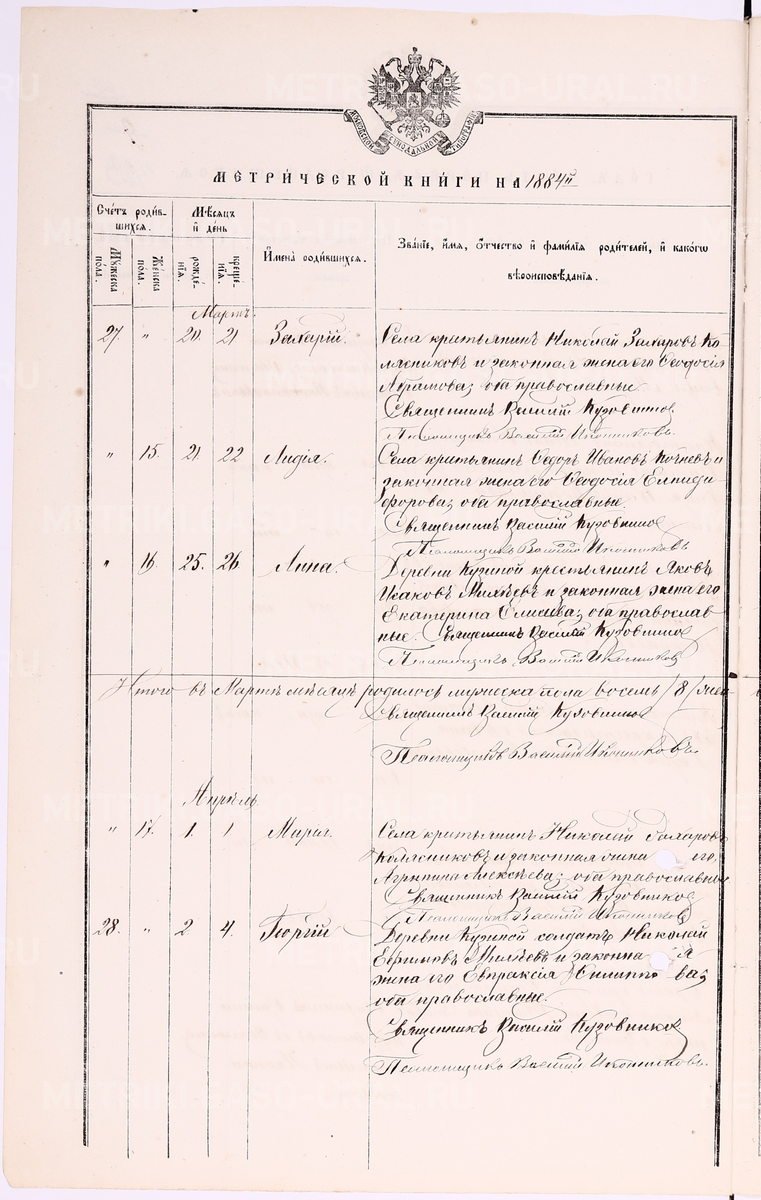 МОСКОВСКОЙ СѴНОДАЛЬНОЙ ТИПОГРАФІИ
МЕТРИ́ЧЕСКОЙ КНИ́ГИ НА 1884й
Сче́тъ роди́вшихсѧ.
Мꙋ́жеска по́ла.
Же́нска по́ла.
Мѣ́сѧцъ и҆ де́нь
рожде́нїѧ.
креще́нїѧ.
И҆мена̀ роди́вшихсѧ.
Зва́нїе, и҆́мѧ, ѻ҆́тчество и҆ фами́лїѧ роди́телей, и҆ како́гѡ
вѣроисповѣ́данїѧ.
Мартъ.
27. " 20. 21 Захарій. Села крестьянинъ Николай Захаровъ Ко-
лясниковъ и законная жена его Ѳеодосія
Абрамова; оба православные.
Священникъ Василій Кузовников
Псаломщикъ Василій Иконниковъ.
" 15. 21 22 Лидія. Села крестьянинъ Ѳедоръ Ивановъ Кочневъ и
законная жена его Ѳеодосія Елпиди-
форова; оба православные.
Священникъ Василій Кузовников
Псаломщикъ Василій Иконниковъ
" 16. 25. 26. Анна. Деревни Кузиной крестьянинъ Яковъ
Исаковъ Михѣевъ и законная жена его
Екатерина Елисеева; оба православ-
ные. Священникъ Василій Кузовников
Псаломщикъ Василій Иконников
Итого въ Мартѣ мѣсяцѣ родилось мужеска пола восемь /8/
Священникъ Василій Кузовников
Псаломщикъ Василій Иконниковъ.
Апрѣль
" 17. 1. 1 Марія. Села крестьянинъ Николай Захаровъ
Колясниковъ и законная жена его
Агрипина Алексѣева; оба православные.
Священникъ Василій Кузовников
Псаломщикъ Василій Иконников
28. " 2 4. Георгій. Деревни Кузиной солдатъ Николай
Ефимовъ Михѣевъ и законна я
жена его Евпраксія Филипп ва;
оба православные.
Священникъ Василій Кузовников
Псаломщикъ Василій Иконниковъ.